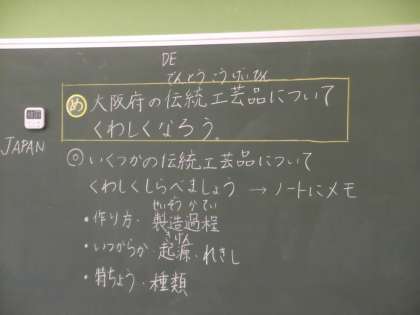 DE
でんとうこうげいひん
め 大阪府の伝統工芸品について
くわしくなろう。
JAPAN
◎いくつかの伝統工芸品について
くわしくしらべましょう → ノートにメモ
せいぞうかてい
・作り方・製造過程
きげん
・いつからか・起源・れきし
・特ちょう・種類